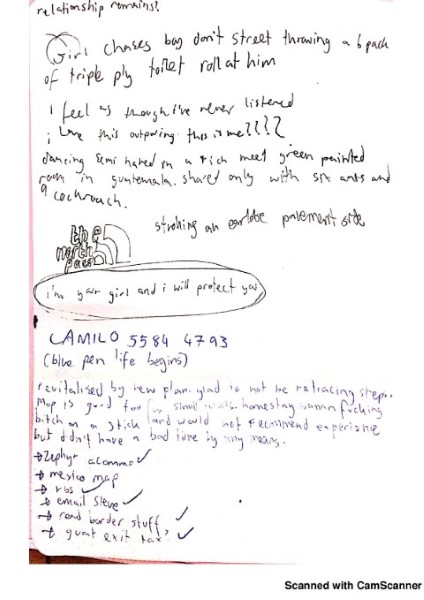 relationship remains?
Girl chases boy don't street throwing a 6 pack
of triple ply toilet roll at him
I feel as though i've never listened
i love this outpouring this is me????
dancing semi naked in a rich meet green painted
room in guatemala. shared only with six ants and
a cockroach.
stroking an earlobe pavement side
the
north
face
i'm your girl and i will protect you
CAMILO 5584 4793
(blue pen life begins)
revitalised by new plan. glad to not be retracing steps.
map is good too for small towns. homestay woman fucking
bitch on a stick and would not recommend experience
but didn't have a bad time by any means.
→ Zephyr accommo ✓
→ mexico map
→ rbs ✓
→ email Steve ✓
→ read border stuff ✓
→ guat exit tax? ✓
Scanned with CamScanner